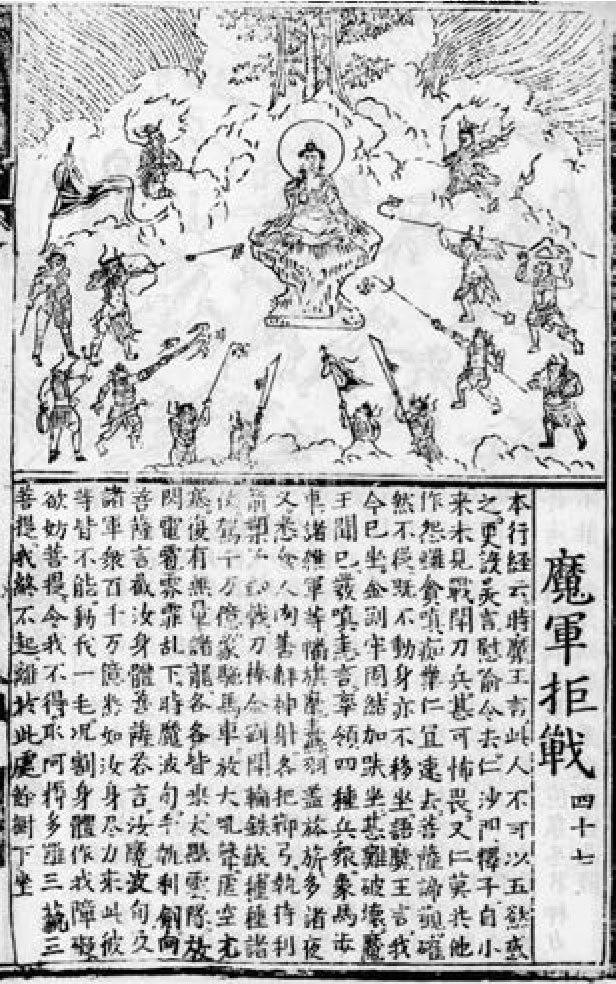 魔軍拒戰 四十七
本行經云時魔王言此人不可以五慾惑
之更設美言慰喻令去仁沙門釋子自小
來未見戰鬪刀兵甚可怖畏又仁莫共他
作怨讎貪嗔痴業仁宜速去菩薩諦觀確
然不從既不動身亦不移坐語魔王言我
今已坐金剛牢固結加趺坐甚難破壞魔
王聞已發嗔恚言率領四種兵衆象馬步
車諸雜軍等幡旗麾纛羽蓋旌旂多諸夜
叉悉食人肉善解神射各把御弓執持利
箭槊戟刀棒金剛鬪輪鉄鉞種種諸
仗駕千万億象駝馬車放大吼聲虛空充
塞復有無量諸龍各各皆乘大黑雲隊放
閃電雹霖霏乱下時魔波旬手執利劍向
菩薩言截汝身體菩薩荅言汝魔波旬及
諸軍衆百千万億悉如汝身尽力來此彼
等皆不能動我一毛況割身體作我障礙
欲妙菩提令我不得取阿耨多羅三藐三
菩提我終不起離於此處餘樹下坐